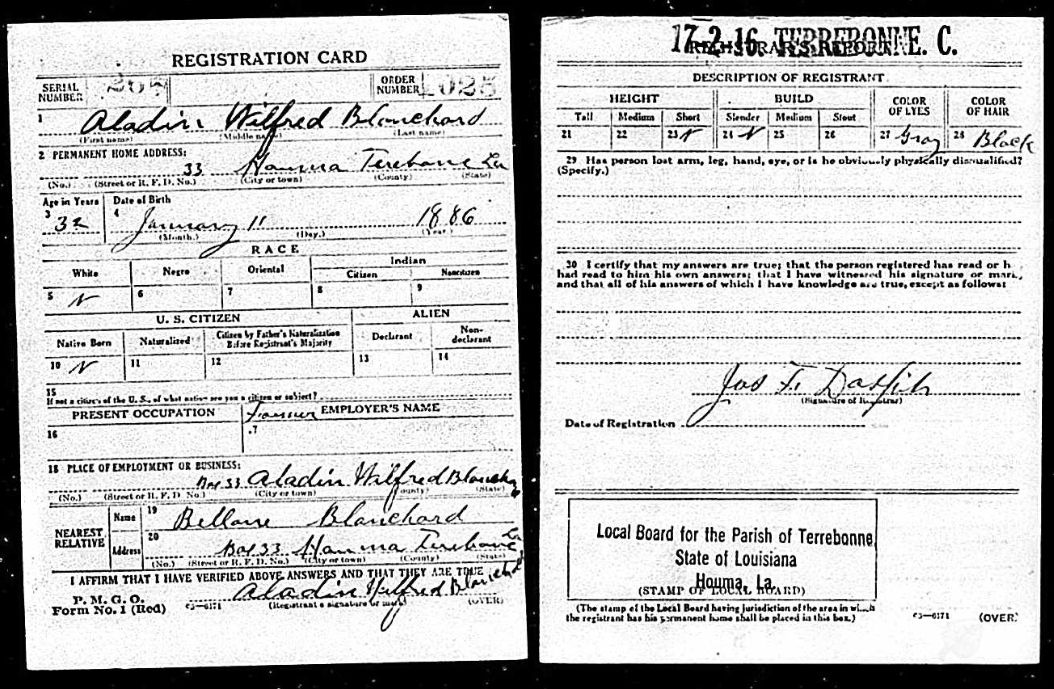 REGISTRATION CARD
SERIAL NUMBER
ORDER NUMBER 1025
1 Aladin Wilfred Blanchard
(First name) (Middle name) (Last name)
2 PERMANENT HOME ADDRESS:
33 Hamma Terebone La
(No.) (Street or R. F. D. No.) (City or town) (County) (State)
Age in Years Date of Birth
3 32 4 January 11 1886
(Month.) (Day.) (Year.)
RACE
White Negro Oriental Indian
Citizen Noncitizen
5 N 6 7 8 9
U. S. CITIZEN ALIEN
Native Born Naturalized Citizen by Father's Naturalization Before Registrant's Majority Declarant Non-declarant
10 N 11 12 13 14
15
If not a citizen of the U. S., of what nation are you a citizen or subject?
PRESENT OCCUPATION EMPLOYER'S NAME
16 Farmer 17
18 PLACE OF EMPLOYMENT OR BUSINESS:
Box 33 Aladin Wilfred Blanchard
(No.) (Street or R. F. D. No.) (City or town) (County) (State)
NEAREST RELATIVE
Name 19 Blanchard
Address 20 Box 33 Hamma Terebone La
(No.) (Street or R. F. D. No.) (City or town) (County) (State)
I AFFIRM THAT I HAVE VERIFIED ABOVE ANSWERS AND THAT THEY ARE TRUE
P. M. G. O.
Form No. 1 (Red) Aladin Wilfred Blanchard
03—6171 (Registrant's signature or mark) (OVER)
17-2-16 TERREBONNE. C.
REGISTRAR'S REPORT
DESCRIPTION OF REGISTRANT
HEIGHT BUILD COLOR OF EYES COLOR OF HAIR
Tall Medium Short Slender Medium Stout
21 22 23 N 24 N 25 26 27 Gray 28 Black
29 Has person lost arm, leg, hand, eye, or is he obviously physically disqualified?
(Specify.)
30 I certify that my answers are true; that the person registered has read or h
had read to him his own answers; that I have witnessed his signature or mark,
and that all of his answers of which I have knowledge are true, except as follows:
Jos F.
(Signature of Registrar)
Date of Registration
Local Board for the Parish of Terrebonne,
State of Louisiana
Houma, La.
(STAMP OF LOCAL BOARD)
(The stamp of the Local Board having jurisdiction of the area in which
the registrant has his permanent home shall be placed in this box.)
03—6171 (OVER)